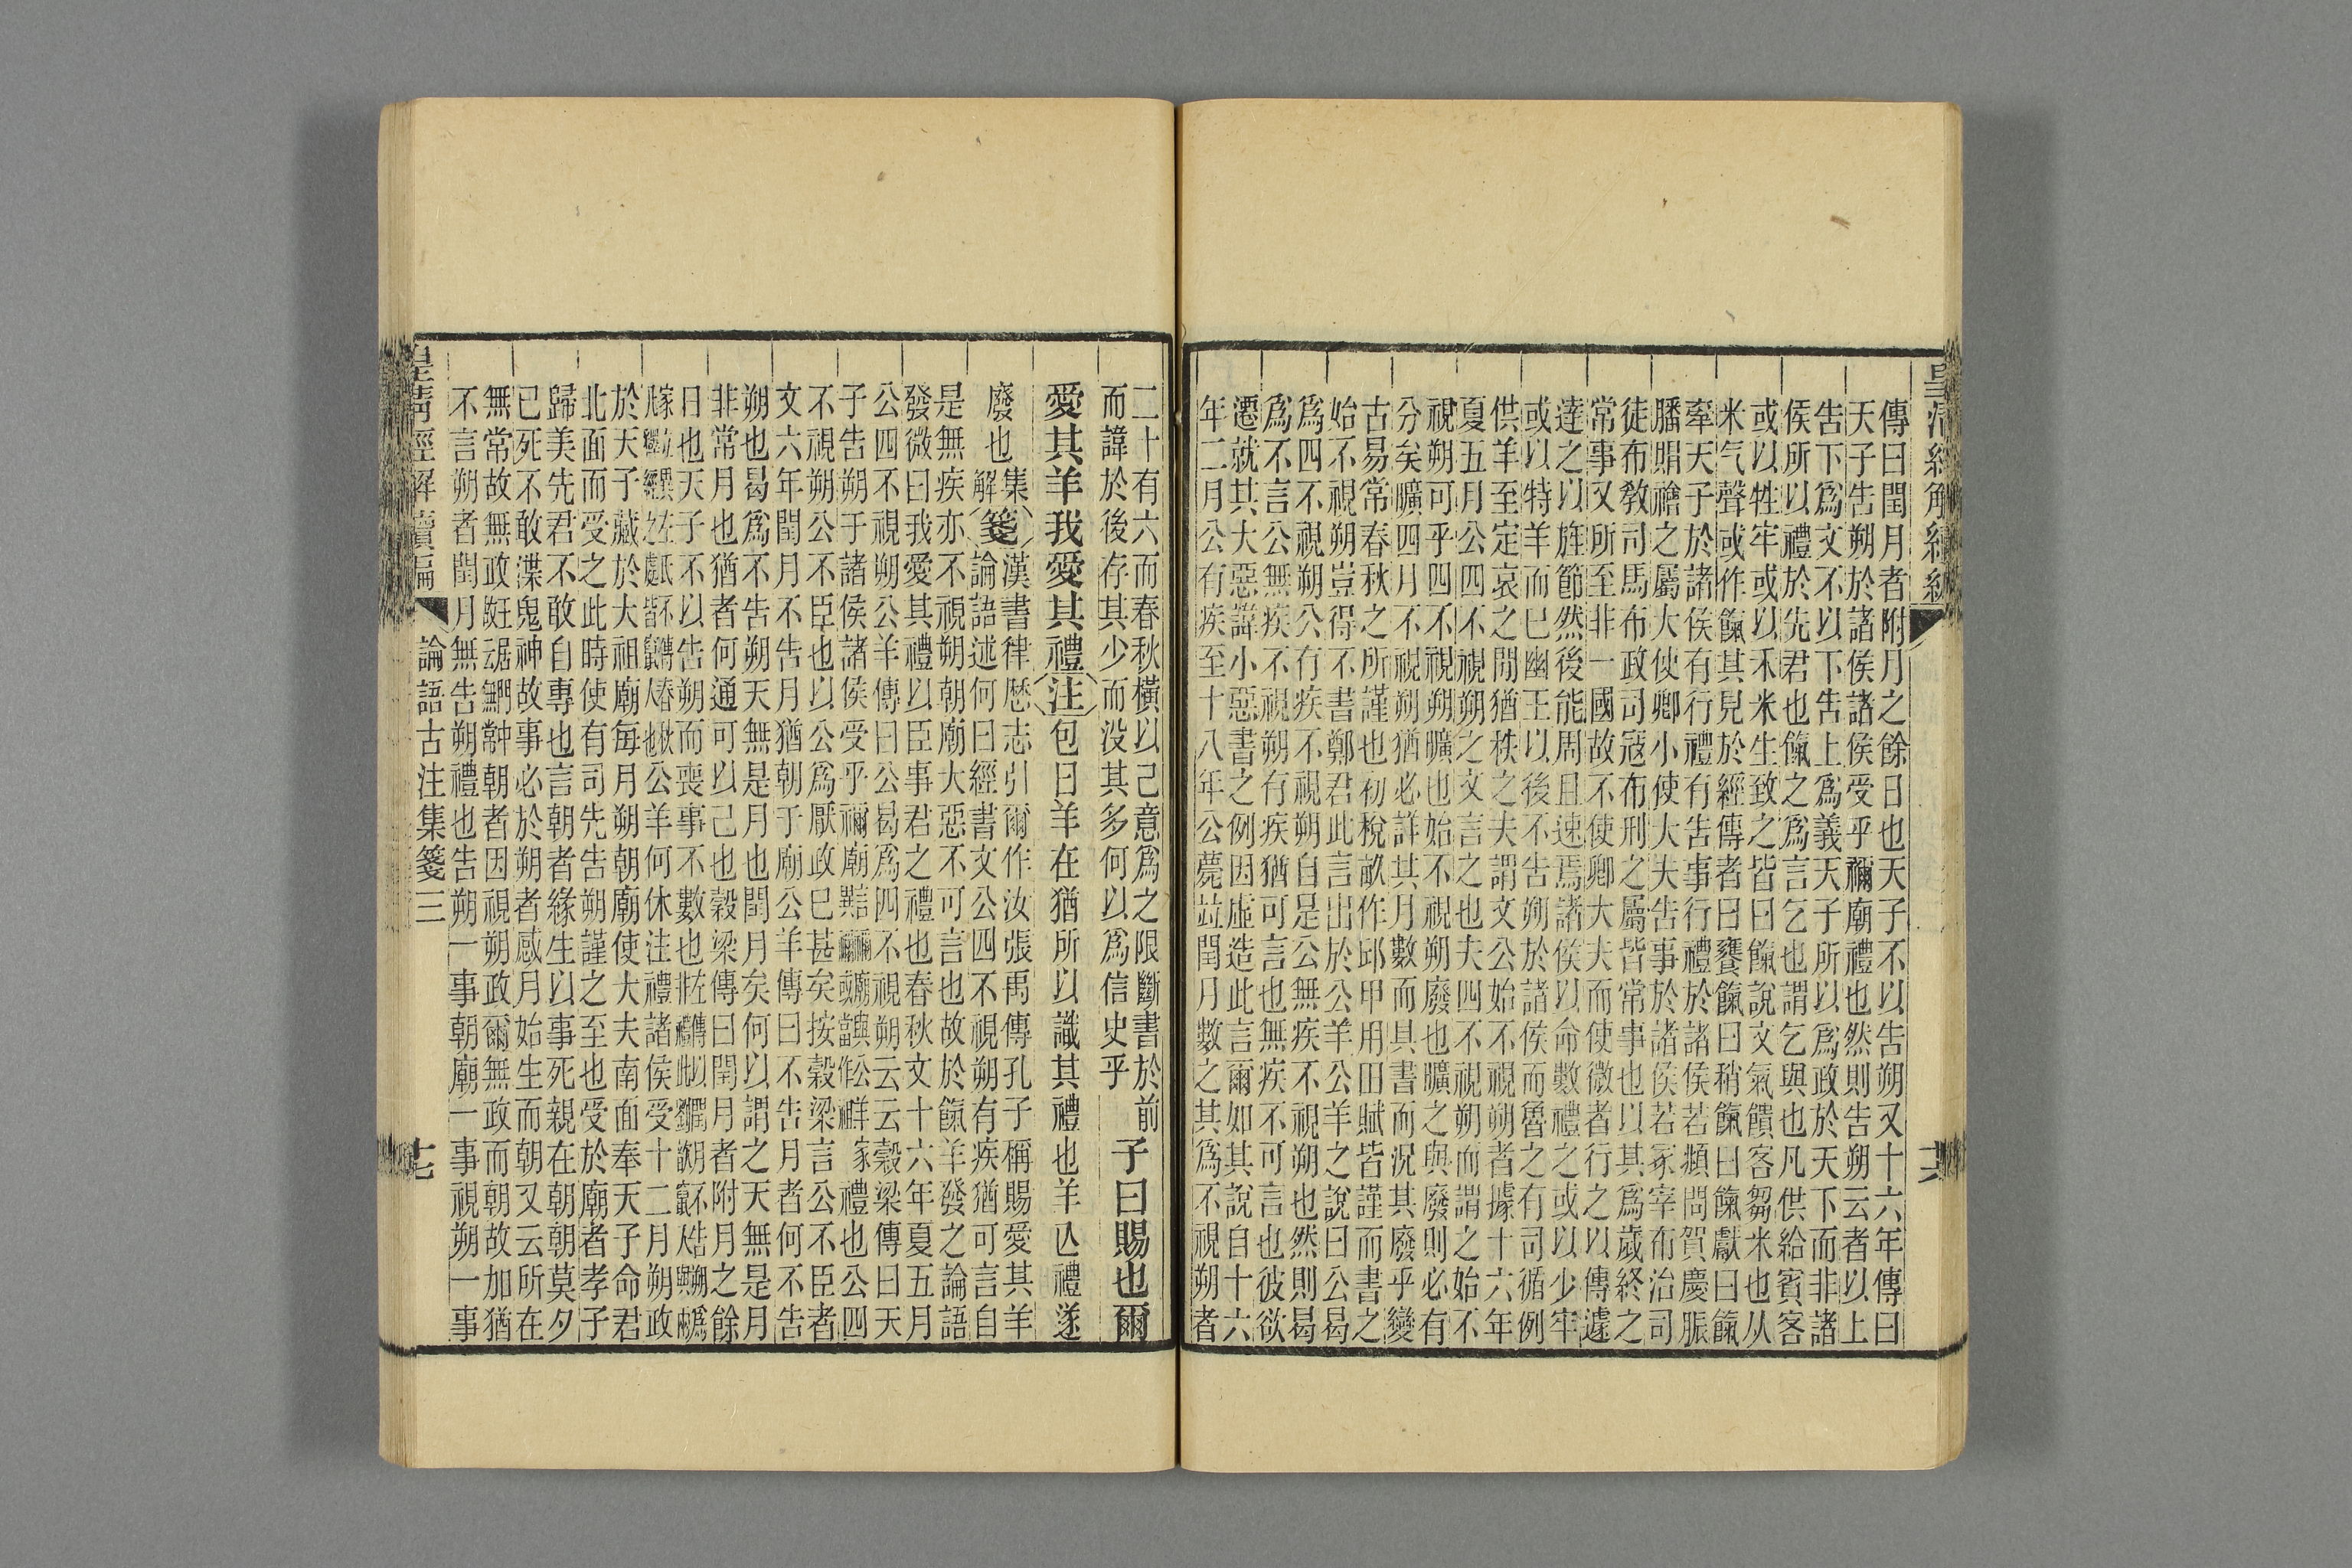 皇清經解續編
傳曰閏月者附月之餘日也天子不以告朔又十六年傳曰
天子告朔於諸侯諸侯受乎禰廟禮也然則告朔云者以上
告下爲文不以下告上爲義天子所以爲政於天下而非諸
侯所以禮於先君也餼之爲言乞也謂乞與也凡供給賓客
或以牲牢或以禾米生致之皆曰餼說文氣饋客芻米也从
米气聲或作餼其見於經傳者曰饔餼曰稍餼曰餼獻曰餼
牽天子於諸侯有行禮有告事行禮於諸侯若頫問賀慶脤
膰賵襘之屬大使卿小使大夫告事於諸侯若冢宰布治司
徒布教司馬布政司寇布刑之屬皆常事也以其爲歲終之
常事又所至非一國故不使卿大夫而使微者行之以傳遽
達之以旌節然後能周且速焉諸侯以命數禮之或以少牢
或以特羊而已幽王以後不告朔於諸侯而魯之有司循例
供羊至定哀之閒猶秩之夫謂文公始不視朔者據十六年
夏五月公四不視朔之文言之也夫四不視朔而謂之始不
視朔可乎四不視朔曠也始不視朔廢也曠之與廢則必有
分矣曠四月不視朔猶必詳其月數而具書而況其廢乎變
古易常春秋之所謹也初稅畝作邱甲用田賦皆謹而書之
始不視朔豈得不書鄭君此言出於公羊公羊之說曰公曷
爲四不視朔公有疾不視朔自是公無疾不視朔也然則曷
爲不言公無疾不視朔有疾猶可言也無疾不可言也彼欲
遷就其大惡諱小惡書之例因虛造此言爾如其說自十六
年二月公有疾至十八年公薨竝閏月數之其爲不視朔者
二十有六而春秋橫以己意爲之限斷書於前
而諱於後存其少而没其多何以爲信史乎
子曰賜也爾
愛其羊我愛其禮注包曰羊在猶所以識其禮也羊亾禮遂
廢也集解箋漢書律厯志引爾作汝張禹傳孔子稱賜愛其羊
論語述何曰經書文公四不視朔有疾猶可言自
是無疾亦不視朔朝廟大惡不可言也故於餼羊發之論語
發微曰我愛其禮以臣事君之禮也春秋文十六年夏五月
公四不視朔公羊傳曰公曷爲四不視朔云云穀梁傳曰天
子告朔于諸侯諸侯受乎禰廟禮也公四
不視朔公不臣也以公爲厭政已甚矣按穀梁言公不臣者
文六年閏月不告月猶朝于廟公羊傳曰不告月者何不告
朔也曷爲不告朔天無是月也閏月矣何以謂之天無是月
非常月也猶者何通可以已也穀梁傳曰閏月者附月之餘
日也天子不以告朔而喪事不數也
公羊何休注禮諸侯受十二月朔政
於天子藏於大祖廟每月朔朝廟使大夫南面奉天子命君
北面而受之此時使有司先告朔謹之至也受於廟者孝子
歸美先君不敢自專也言朝者緣生以事死親在朝朝莫夕
已死不敢渫鬼神故事必於朔者感月始生而朝又云所在
無常故無政朝者因視朔政爾無政而朝故加猶
不言朔者閏月無告朔禮也告朔一事朝廟一事視朔一事
皇清經解續編 論語古注集箋三 十七